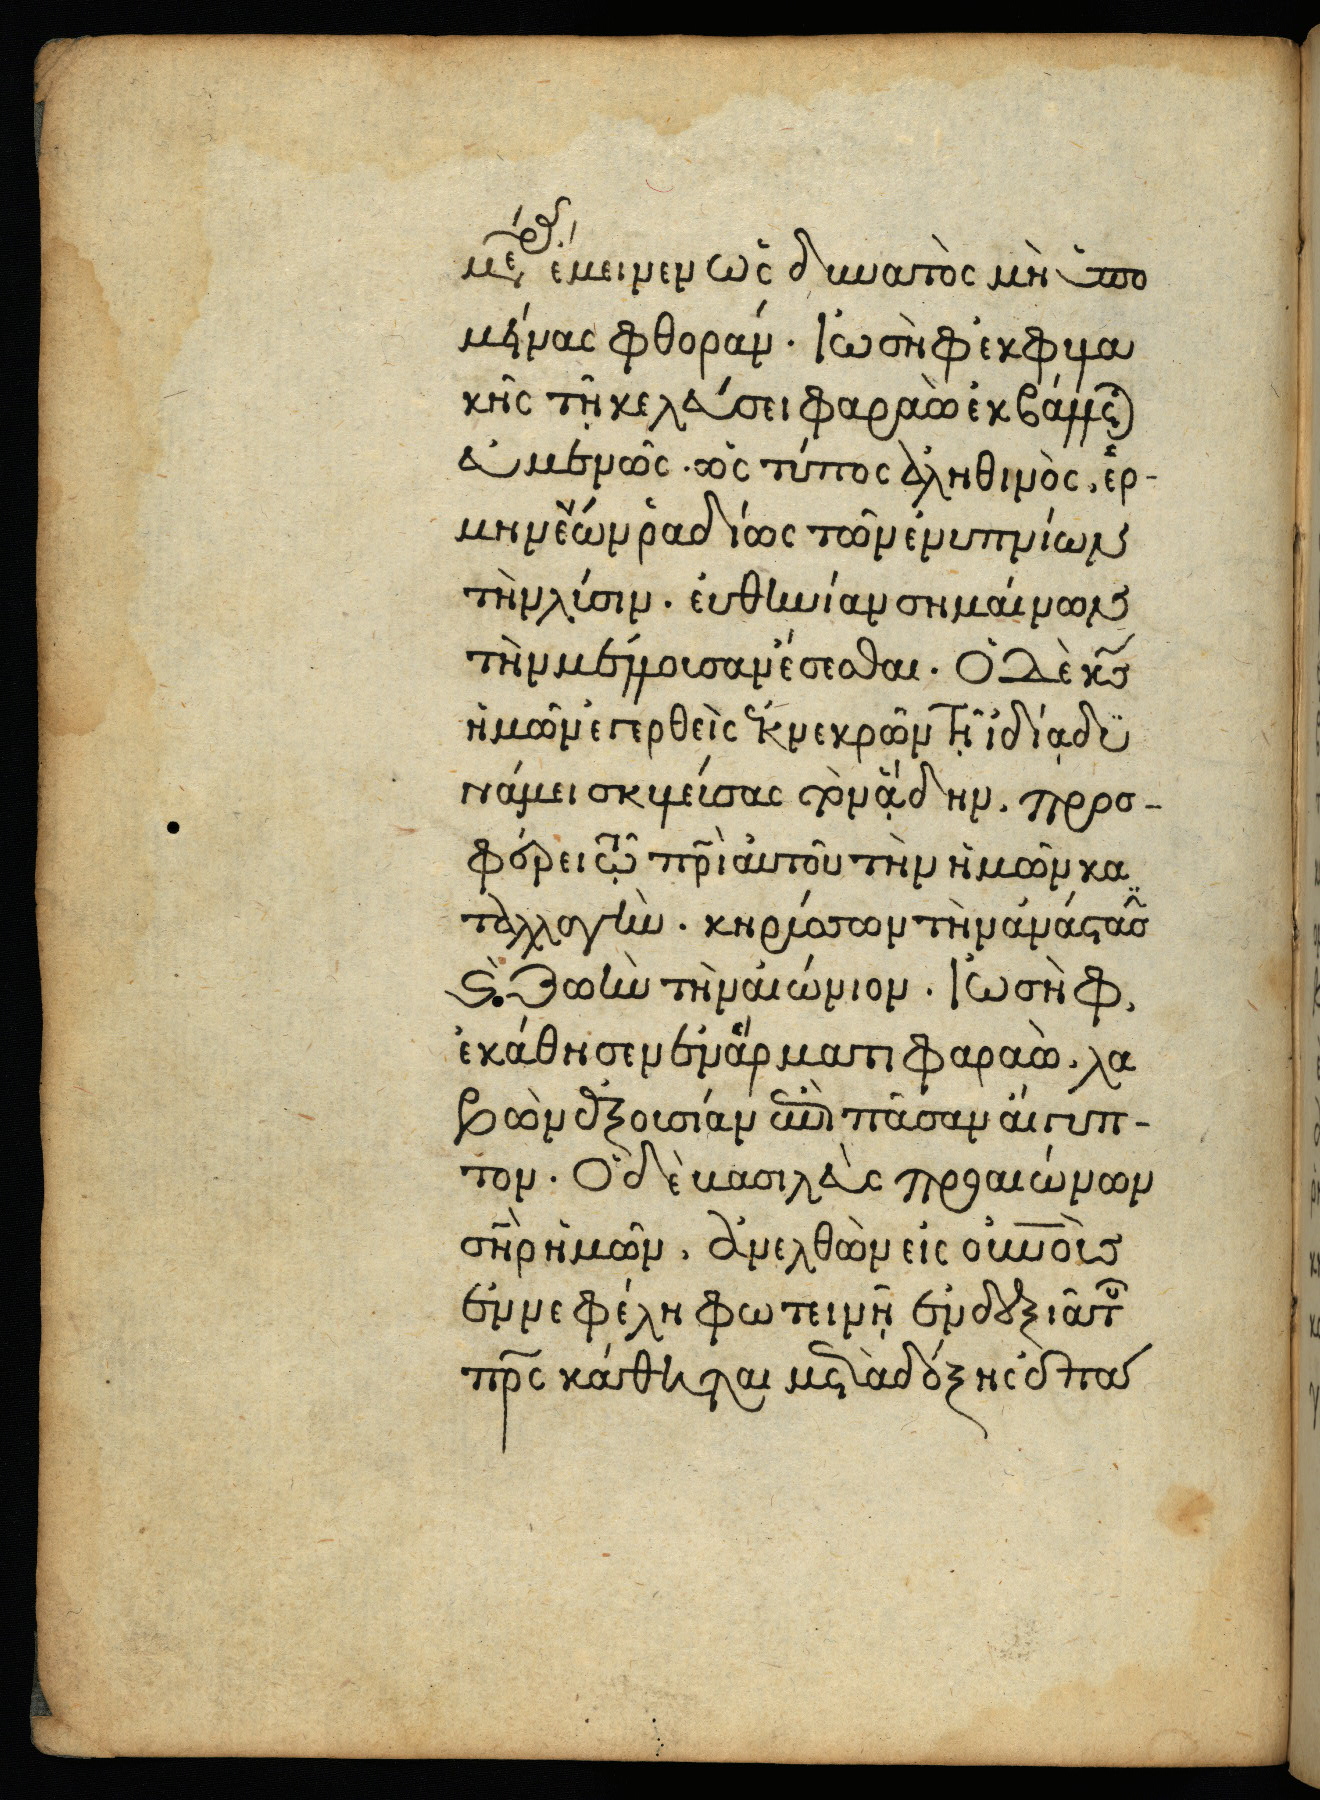 ἔμεινεν ὡς δυνατὸς μὴ ὑπο
μείνας φθοράν. Ἰωσὴφ ἐκ φυλα
κῆς τῆ κελεύσει φαραὼ ἐκβάντος
εὐμενῶς. ὡς τύπος ἀληθινὸς, ἑρ-
μηνεύων ῥαδίως τῶν ἐνυπνίων
τὴν λύσιν. εὐθηνίαν σημαίνων
τὴν μένουσαν ἔσεσθαι. Ὁ δὲ κς
ἡμῶν ἐγερθεὶς ἐκ νεκρῶν τῆ ἰδία δυ
νάμει σκυλεύσας τὸν ἅδην, προσ-
φέρει τῶ πρὶ αὐτοῦ τὴν ἡμῶν κα
ταλλαγὴν. κηρύττων τὴν ἀνάστασ
καὶ ζωὴν τὴν αἰώνιον. Ἰωσὴφ,
ἐκάθησεν ἐν ἅρματι φαραὼ, λα
βὼν ἐξουσίαν ἐπὶ πᾶσαν αἴγυπ-
τον. Ὁ δὲ βασιλεὺς προαιώνων
σὴρ ἡμῶν, ἀνελθὼν εἰς οὐνοὺς
ἐν νεφέλη φωτεινῆ ἐν δεξιᾶ τοῦ
πρς κάθηται μετὰ δόξης